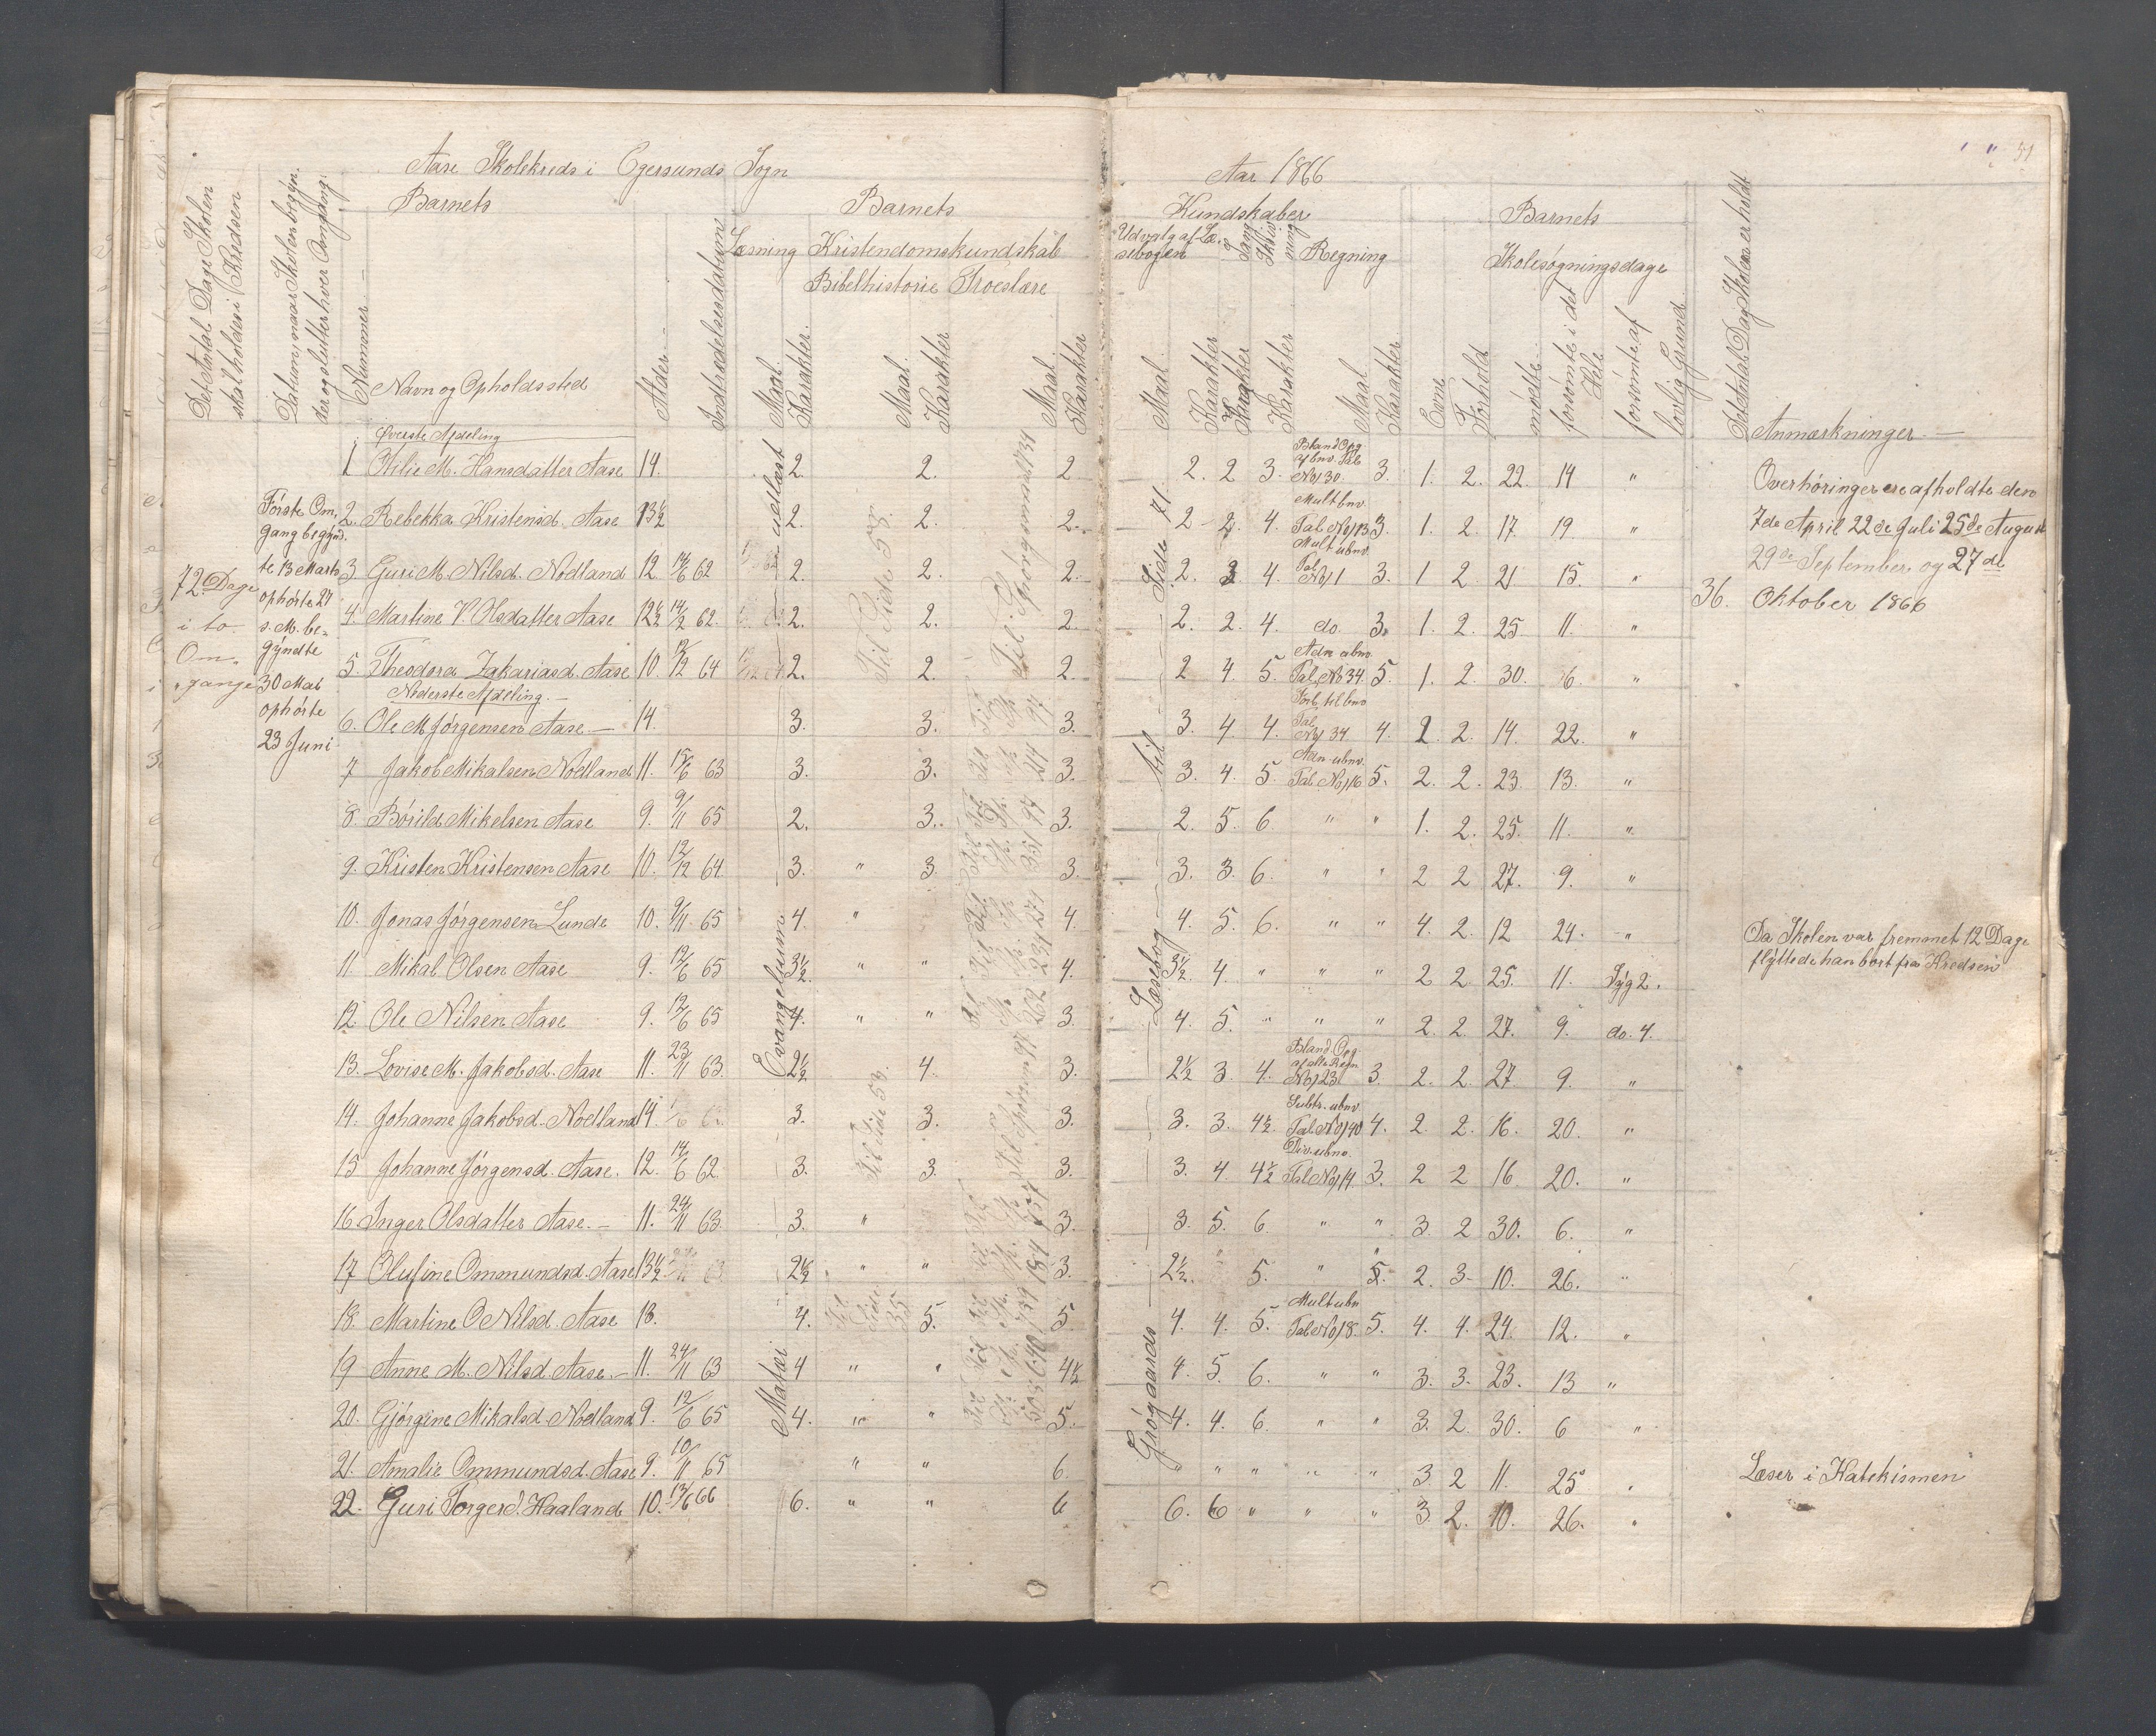 Aase Skolekreds i Egersunds Sogn
Aar 1866
51
Det Antal Dage Skolen skal holdes i Kredsen
Datum, naar Skolen begynder og slutter hver Omgang.
Nummer
Barnets
Navn og Opholdssted
Alder
Indtrædelsesdatum
Barnets
Læsning
Kristendomskundskab
Bibelhistorie Troeslære
Maal. Karakter. Maal. Karakter Maal Karakter
Kundskaber
Udvalg af Læsebogen
Sang
Skrivning
Regning
Maal. Karakter Karakter Karakter Maal Karakter
Barnets
Evne Forhold
Skolesøgningsdage
mødte forsømte i det Hele forsømte af lovlig Grund
Det Antal Dag Skolen er holdt
Anmærkninger
72 Dage
i to
Om-
gange
Første Om-
gang begynd-
te 13 Marts
ophørte 27
s. M. be-
gyndte
30 Mai
ophørte
23 Juni
Øverste Afdeling
1 Otilie M. Hansdatter Aase 14. 2. 2. 2 2. 2 3. Bland Opg af bnv. Tal No 130. 3. 1. 2. 22. 14 "
2. Rebekka Kristensd. Aase 13½ 2. 2. 2. 2 2. 4. Mult bnv. Tal No 113 3. 1. 2 17. 19 "
3 Guri M. Nilsd. Nodland 12 14/6 62 2. 2. 2. 2. 3 4. Mult ubnv. Tal No 1 3. 1 2 21 15. "
4. Martine V. Olsdatter Aase 12½ 14/2 62. 2. 2. 2 2. 2. 4. do. 3. 1. 2. 25. 11. "
5. Theodora Zakariasd. Aase 10. 12/12 64 2. 2. 2. 2 4. 5. Adn ubnv. Tal No 34. 5. 1. 2. 30. 6. "
Nederste Afdeling.
6. Ole M Jørgensen Aase 14. 3. 3. 3. 3. 4. 4. Tal No 34. 4. 2. 2. 14. 22. "
7 Jakob Mikalsen Nodland 11. 15/6 63 3. 3. 3. 3. 4. 5. Adn ubnv. Tal No 16 5. 2. 2. 23. 13. "
8. Børild Mikelsen Aase 9. 9/11 65 2. 3. 3. 2. 5. 6. " " 1. 2. 25. 11. "
9. Kristen Kristensen Aase 10. 12/12 64. 3. " 3. 3. 3. 3. 6. " " 2 2 27. 9. "
10. Jonas Jørgensen Lunde 10. 9/11 65 4. " 4. 4. 5. 6. " " 4. 2. 12 24. "
11. Mikal Olsen Aase 9. 12/6 65 3½. " " 4. 3½ 4. " " " 2 2. 25. 11. Syg 2.
12 Ole Nilsen Aase 9. 12/6 65 4. " " 3. 4. 5. " " " 2. 2. 27. 9. do. 4.
13. Lovise M. Jakobsd. Aase 11. 23/11 63. 2½ 4. 3. 2½ 3. 4. Bland. Opg. af alle Regn No 123 3. 2. 2. 27. 9. "
14. Johanne Jakobsd. Nodland 14 3. 3. 3. 3. 3. 4½ Subtr. ubnv. Tal No 140 4. 2. 2. 16. 20. "
15 Johanne Jørgensd. Aase. 12. 14/6 62. 3. 3. 3. 3. 4 4½ Div. ubnv. Tal No 114. 3. 2 2 16. 20. "
16. Inger Olsdatter Aase. 11. 24/11 63. 3. " 3. 3. 5. 6. " " 3. 2 30. 6. "
17 Olufine Ommundsd. Aase 13½ 2½ " " 3. 2½. " 5. " 5. 2. 3. 10. 26. "
18. Martine O Nilsd. Aase 13. 4. 5. 5. 4. 4. 5. Mult ubn Tal No 18. 5. 4. 4. 24. 12. "
19 Anne M. Nilsd. Aase. 11. 24/11 63 4 " " 4½ 4. 5. 6. " " 3. 3. 23. 13 "
20. Gjørgine Mikalsd. Nodland 9. 12/6 65 4. " " 5. 4. 4. 6. " " 3. 2. 30. 6 "
21. Amalie Ommundsd. Aase 9. 10/11 65 " " 6. " " " " " 3. 2 11. 25 "
22. Guri Torgersd. Haaland 10. 13/6 66 6. " " 6 6. 6 " " " 3. 2. 10. 26. "
udlæst
Evangelium
Matæi
Til Side 58.
Til Side 53.
Til Side 35
Til Spørgsmaal 734
Side 71.
til
Læsebog
Grøgaards
Overhøringer ere afholdte den
7de April 22de Juli 25de August
29de September og 27de
36. Oktober 1866
Da Skolen var fremmet 12 Dage
flyttede han bort fra Kredsen
Læser i Katekismen